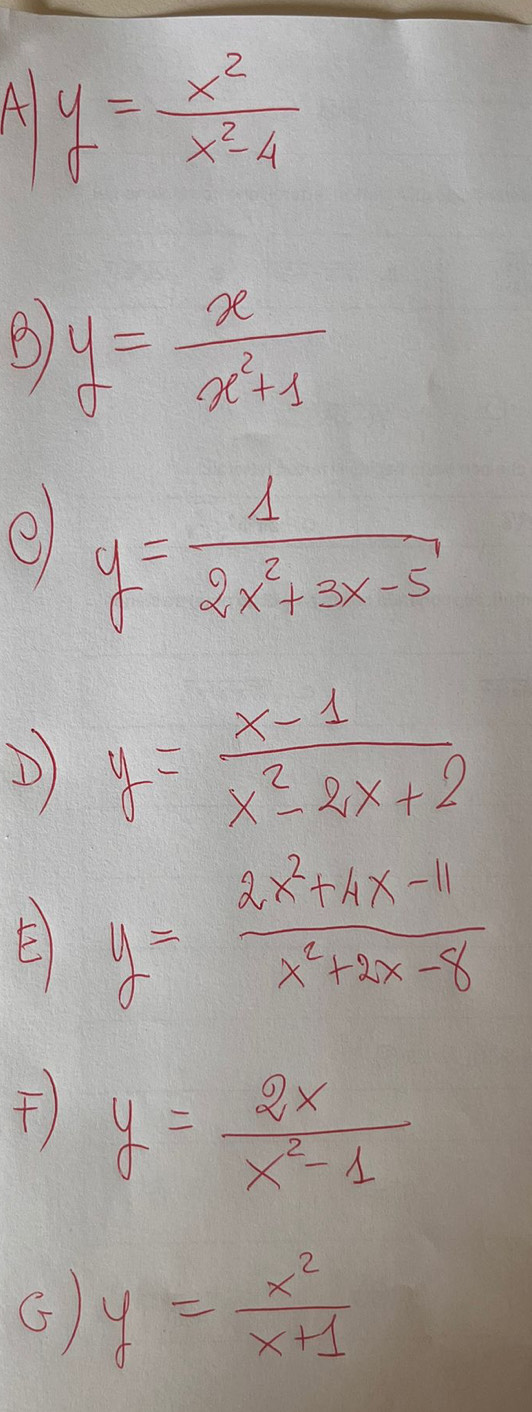 A) y = x²/(x²-4)
B) y = x/(x²+1)
C) y = 1/(2x²+3x-5)
D) y = (x-1)/(x²-2x+2)
E) y = (2x²+4x-11)/(x²+2x-8)
F) y = 2x/(x²-1)
G) y = x²/(x+1)